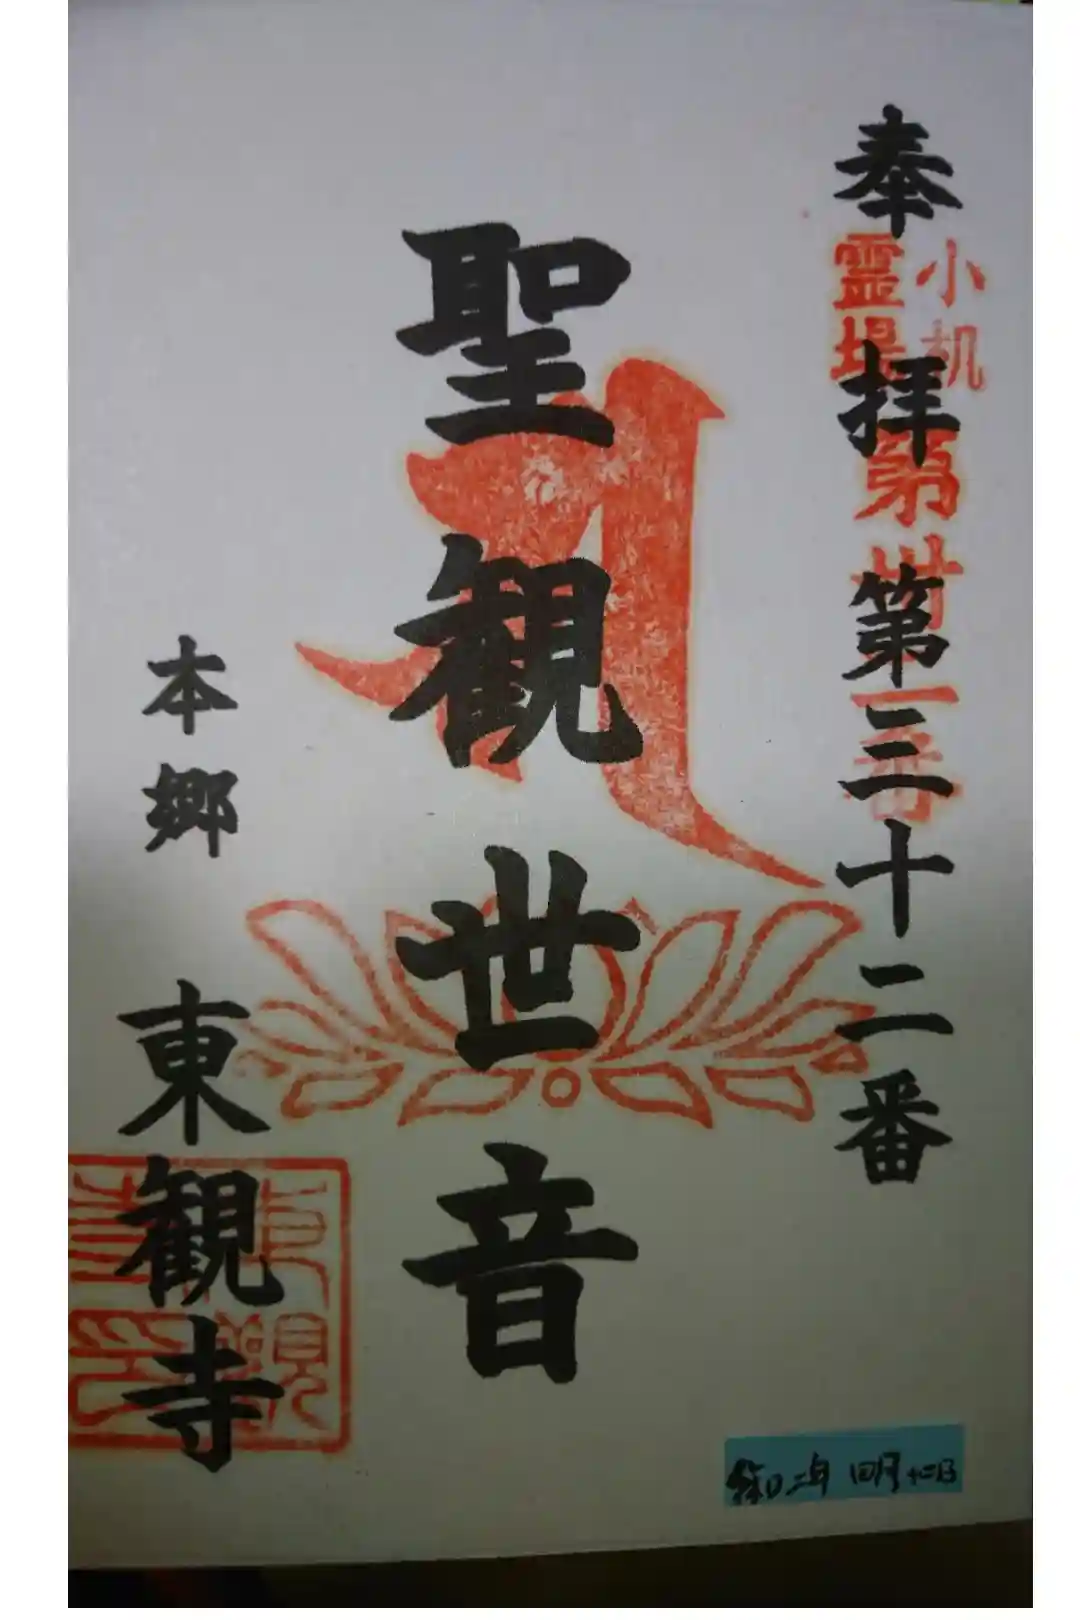 奉拝 第三十二番
小机
霊場
聖観世音
本郷 東観寺
令和二年 四月十二日